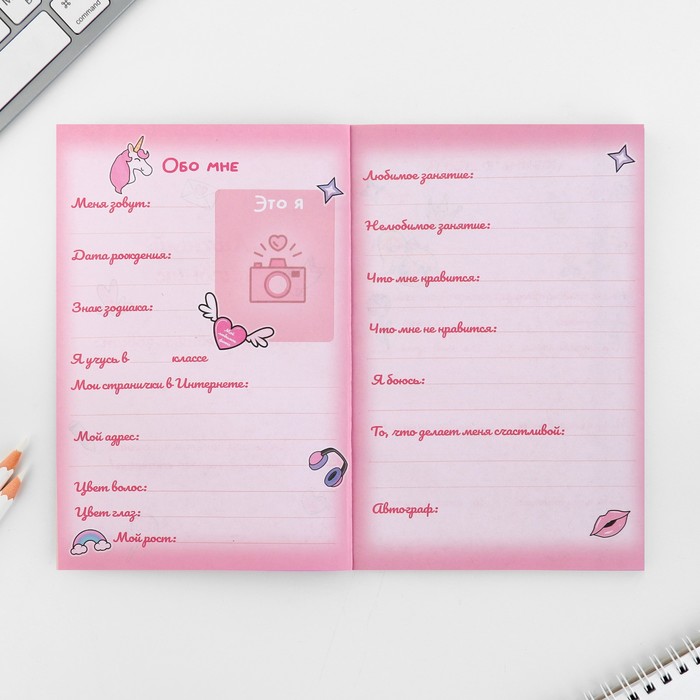 Обо мне
Меня зовут:
Это я
Дата рождения:
Знак зодиака:
Я учусь в классе
Мои странички в Интернете:
Мой адрес:
Цвет волос:
Цвет глаз:
Мой рост:
Любимое занятие:
Нелюбимое занятие:
Что мне нравится:
Что мне не нравится:
Я боюсь:
То, что делает меня счастливой:
Автограф:
command